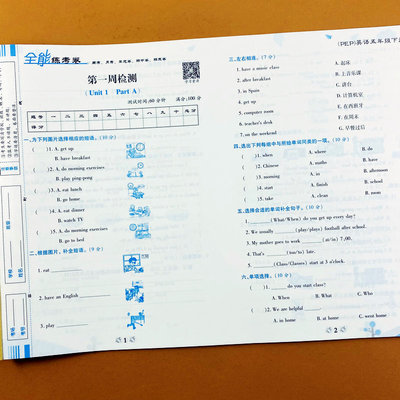 全能练考卷
第一周检测
(Unit 1 Part A)
测试时间:60分钟 满分:100分
题号 一 二 三 四 五 六 七 八 九 十 总分
得分
一、为下列图片选择相应的短语。(10分)
( )1. A. get up
B. have breakfast
( )2. A. do morning exercises
B. play ping-pong
( )3. A. eat lunch
B. go home
( )4. A. eat dinner
B. watch TV
( )5. A. do morning exercises
B. go to bed
二、根据图片,补全短语。(9分)
1. eat
2. have an English
3. play
1
(PEP)英语五年级下
三、左右相连。(7分)
1. have a music class
2. after breakfast
3. in Spain
4. get up
5. computer room
6. teacher's desk
7. on the weekend
A. 起床
B. 上音乐课
C. 讲台
D. 计算机室
E. 在西班牙
F. 在周末
G. 早餐过后
四、选出下列每组中与所给单词同类的一项。(10分)
( )1. when A. where B. do
( )2. Chinese A. maths B. have
( )3. morning A. in B. afternoon
( )4. start A. finish B. school
( )5. take A. clean B. classroom
五、选择合适的单词补全句子。(10分)
1. (What/When) do you get up every day?
2. We usually (play/plays) football after school.
3. My mother goes to work (at/in) 7:00.
4. That's (too/to) late.
5. (Class/Classes) start at 3 o'clock.
六、单项选择。(10分)
( )1. do you start class?
A. When B. What C. Who
( )2. We are helpful
A. in home B. at home C. went home
2
学校
班级
姓名
考号